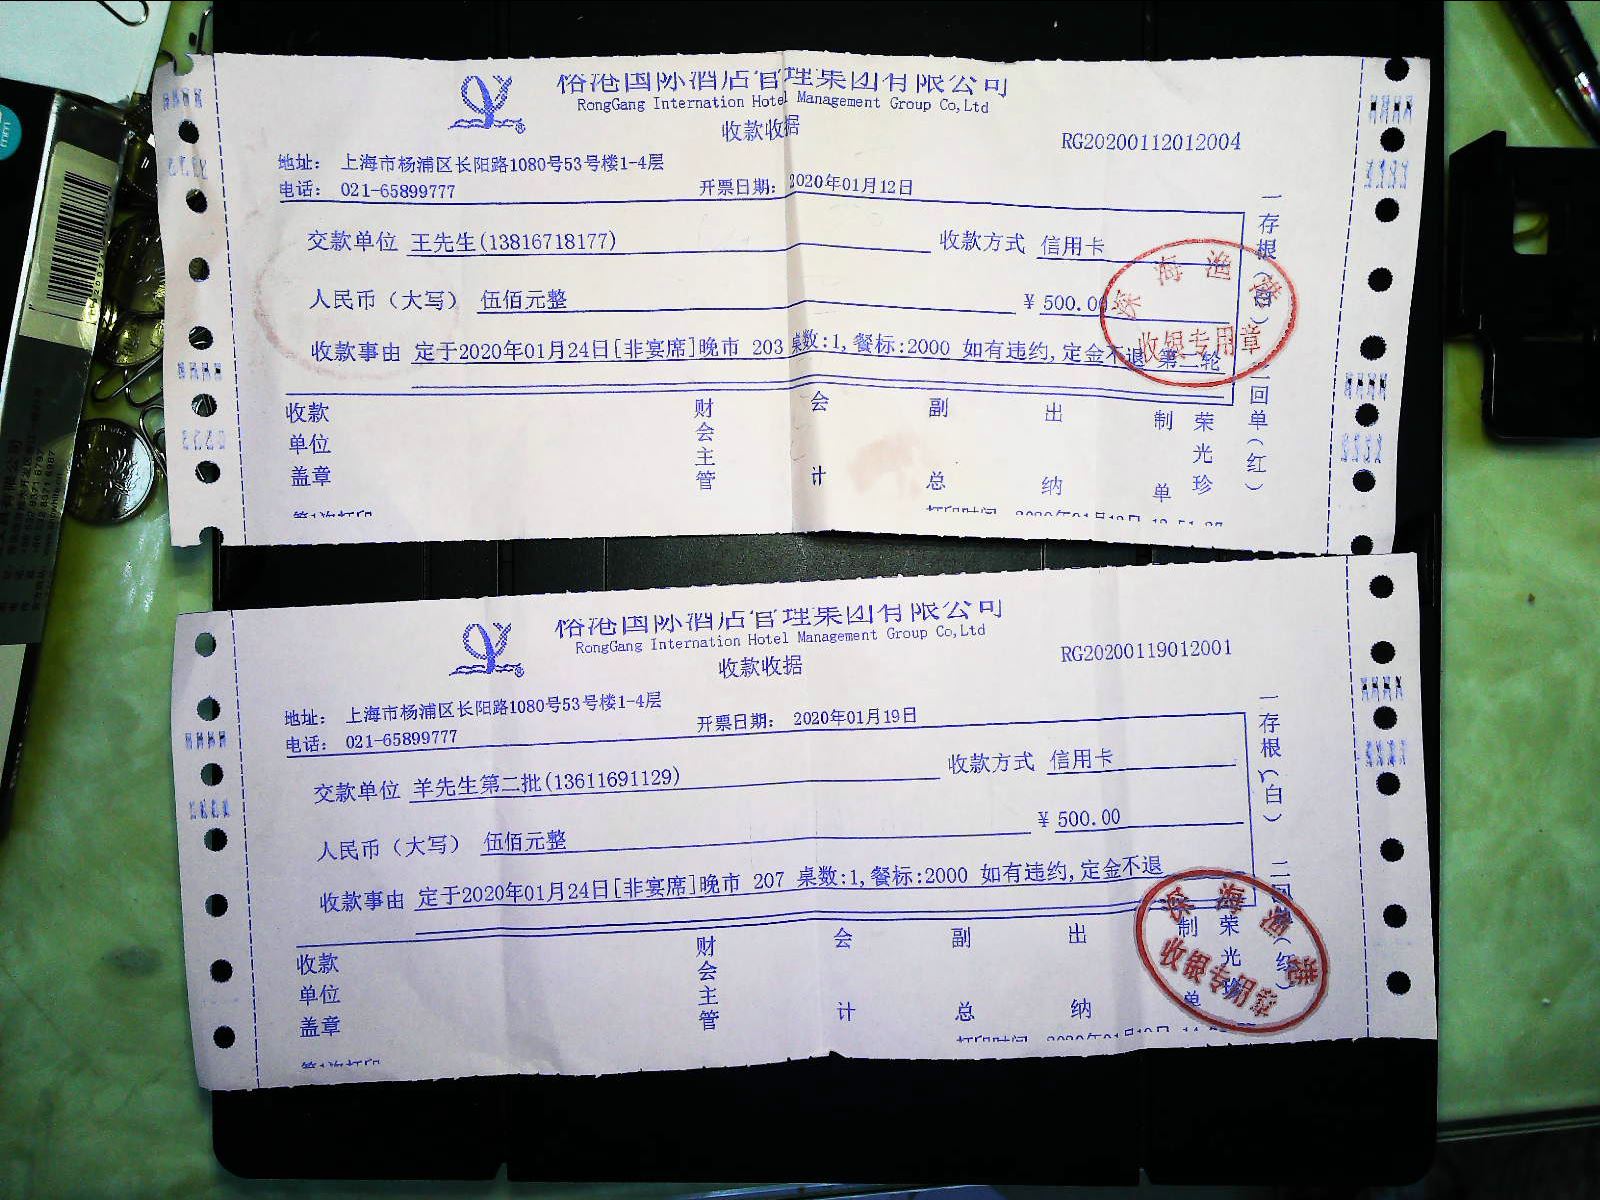 裕港国际酒店管理集团有限公司
RongGang Internation Hotel Management Group Co,Ltd
收款收据
RG20200112012004
地址： 上海市杨浦区长阳路1080号53号楼1-4层
电话： 021-65899777
开票日期： 2020年01月12日
交款单位 王先生(13816718177)
收款方式 信用卡
人民币（大写） 伍佰元整
￥ 500.00
收款事由 定于2020年01月24日[非宴席]晚市 203 桌数:1,餐标:2000 如有违约,定金不退 第二轮
一存根（白）二回单（红）
深海渔港
收银专用章
收款单位盖章
财会主管
会计
副总
出纳
制单
荣光珍
第1次打印
打印时间 2020年01月12日
裕港国际酒店管理集团有限公司
RongGang Internation Hotel Management Group Co,Ltd
收款收据
RG20200119012001
地址： 上海市杨浦区长阳路1080号53号楼1-4层
电话： 021-65899777
开票日期： 2020年01月19日
交款单位 羊先生第二批(13611691129)
收款方式 信用卡
人民币（大写） 伍佰元整
￥ 500.00
收款事由 定于2020年01月24日[非宴席]晚市 207 桌数:1,餐标:2000 如有违约,定金不退
一存根（白）二回单（红）
深海渔港
收银专用章
收款单位盖章
财会主管
会计
副总
出纳
制单
荣光珍
第1次打印
打印时间 2020年01月19日